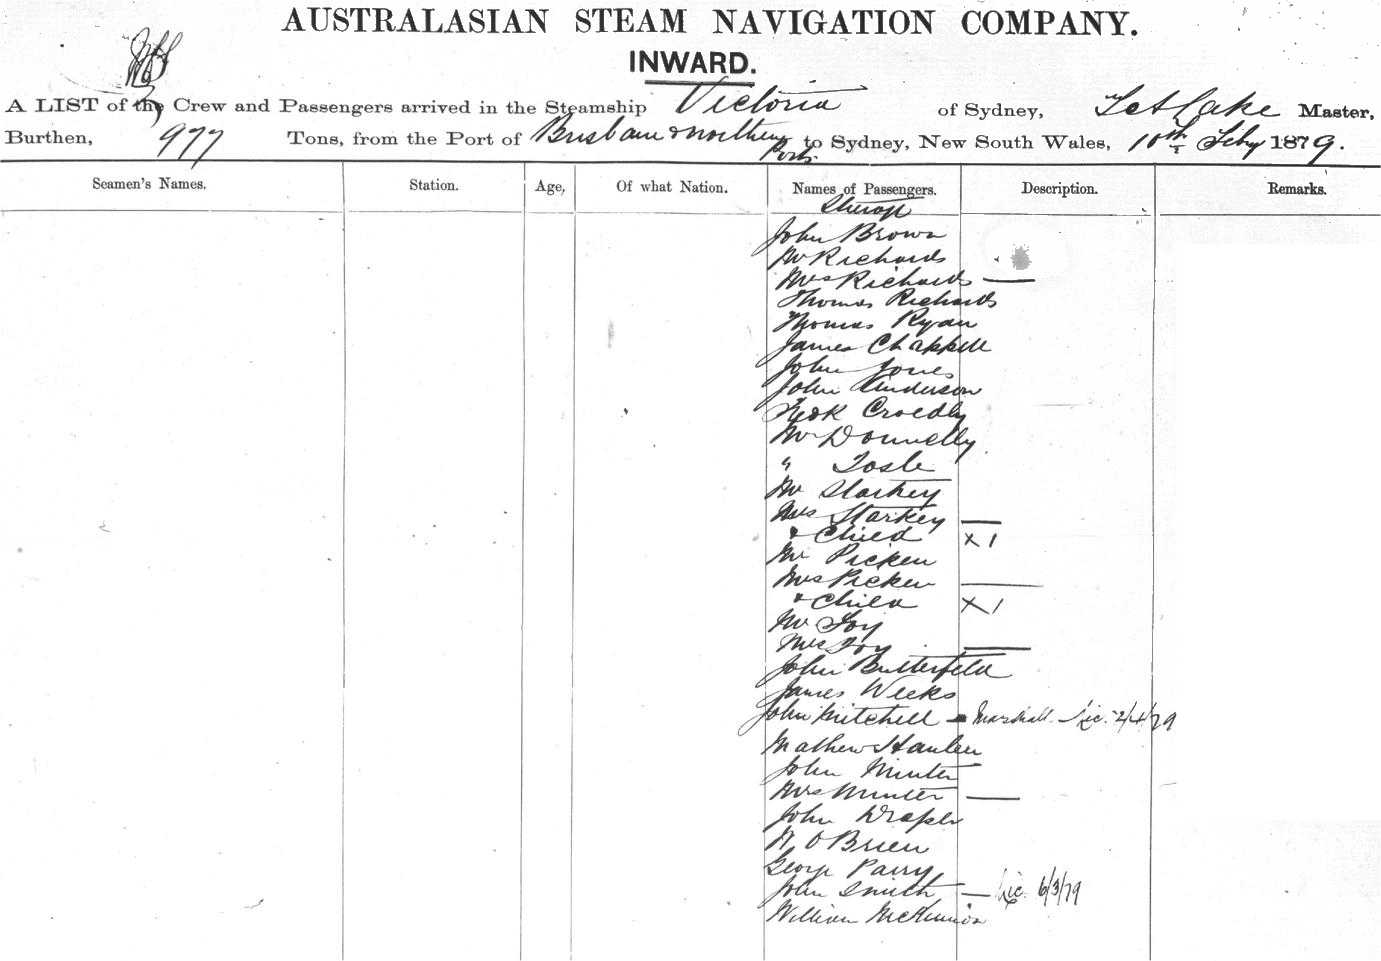 AUSTRALASIAN STEAM NAVIGATION COMPANY.
INWARD.
A LIST of the Crew and Passengers arrived in the Steamship Victoria of Sydney, Lake Master,
Burthen, 977 Tons, from the Port of Brisbane & Northern Ports to Sydney, New South Wales, 10th Feby 1879.
Seamen's Names. Station. Age, Of what Nation. Names of Passengers. Description. Remarks.
Steerage
John Brown
Mr Richards
Mrs Richards —
Thomas Richards
Thomas Ryan
James Chappell
John Jones
John Anderson
Croedly
Mr Donnelly
"
Mr Starkey
Mrs Starkey —
& Child x 1
Mr Picken
Mrs Picken —
& Child x 1
Mr Foy
Mrs Foy —
John Butterfeld
James Weeks
John Mitchell - Marshall. Lic. 2/4/79
Mathew Hanlen
John Minter
Mrs Minter —
John Draper
W. O Brien
George Parry
John Smith — Lic. 6/3/79
William McKinnon